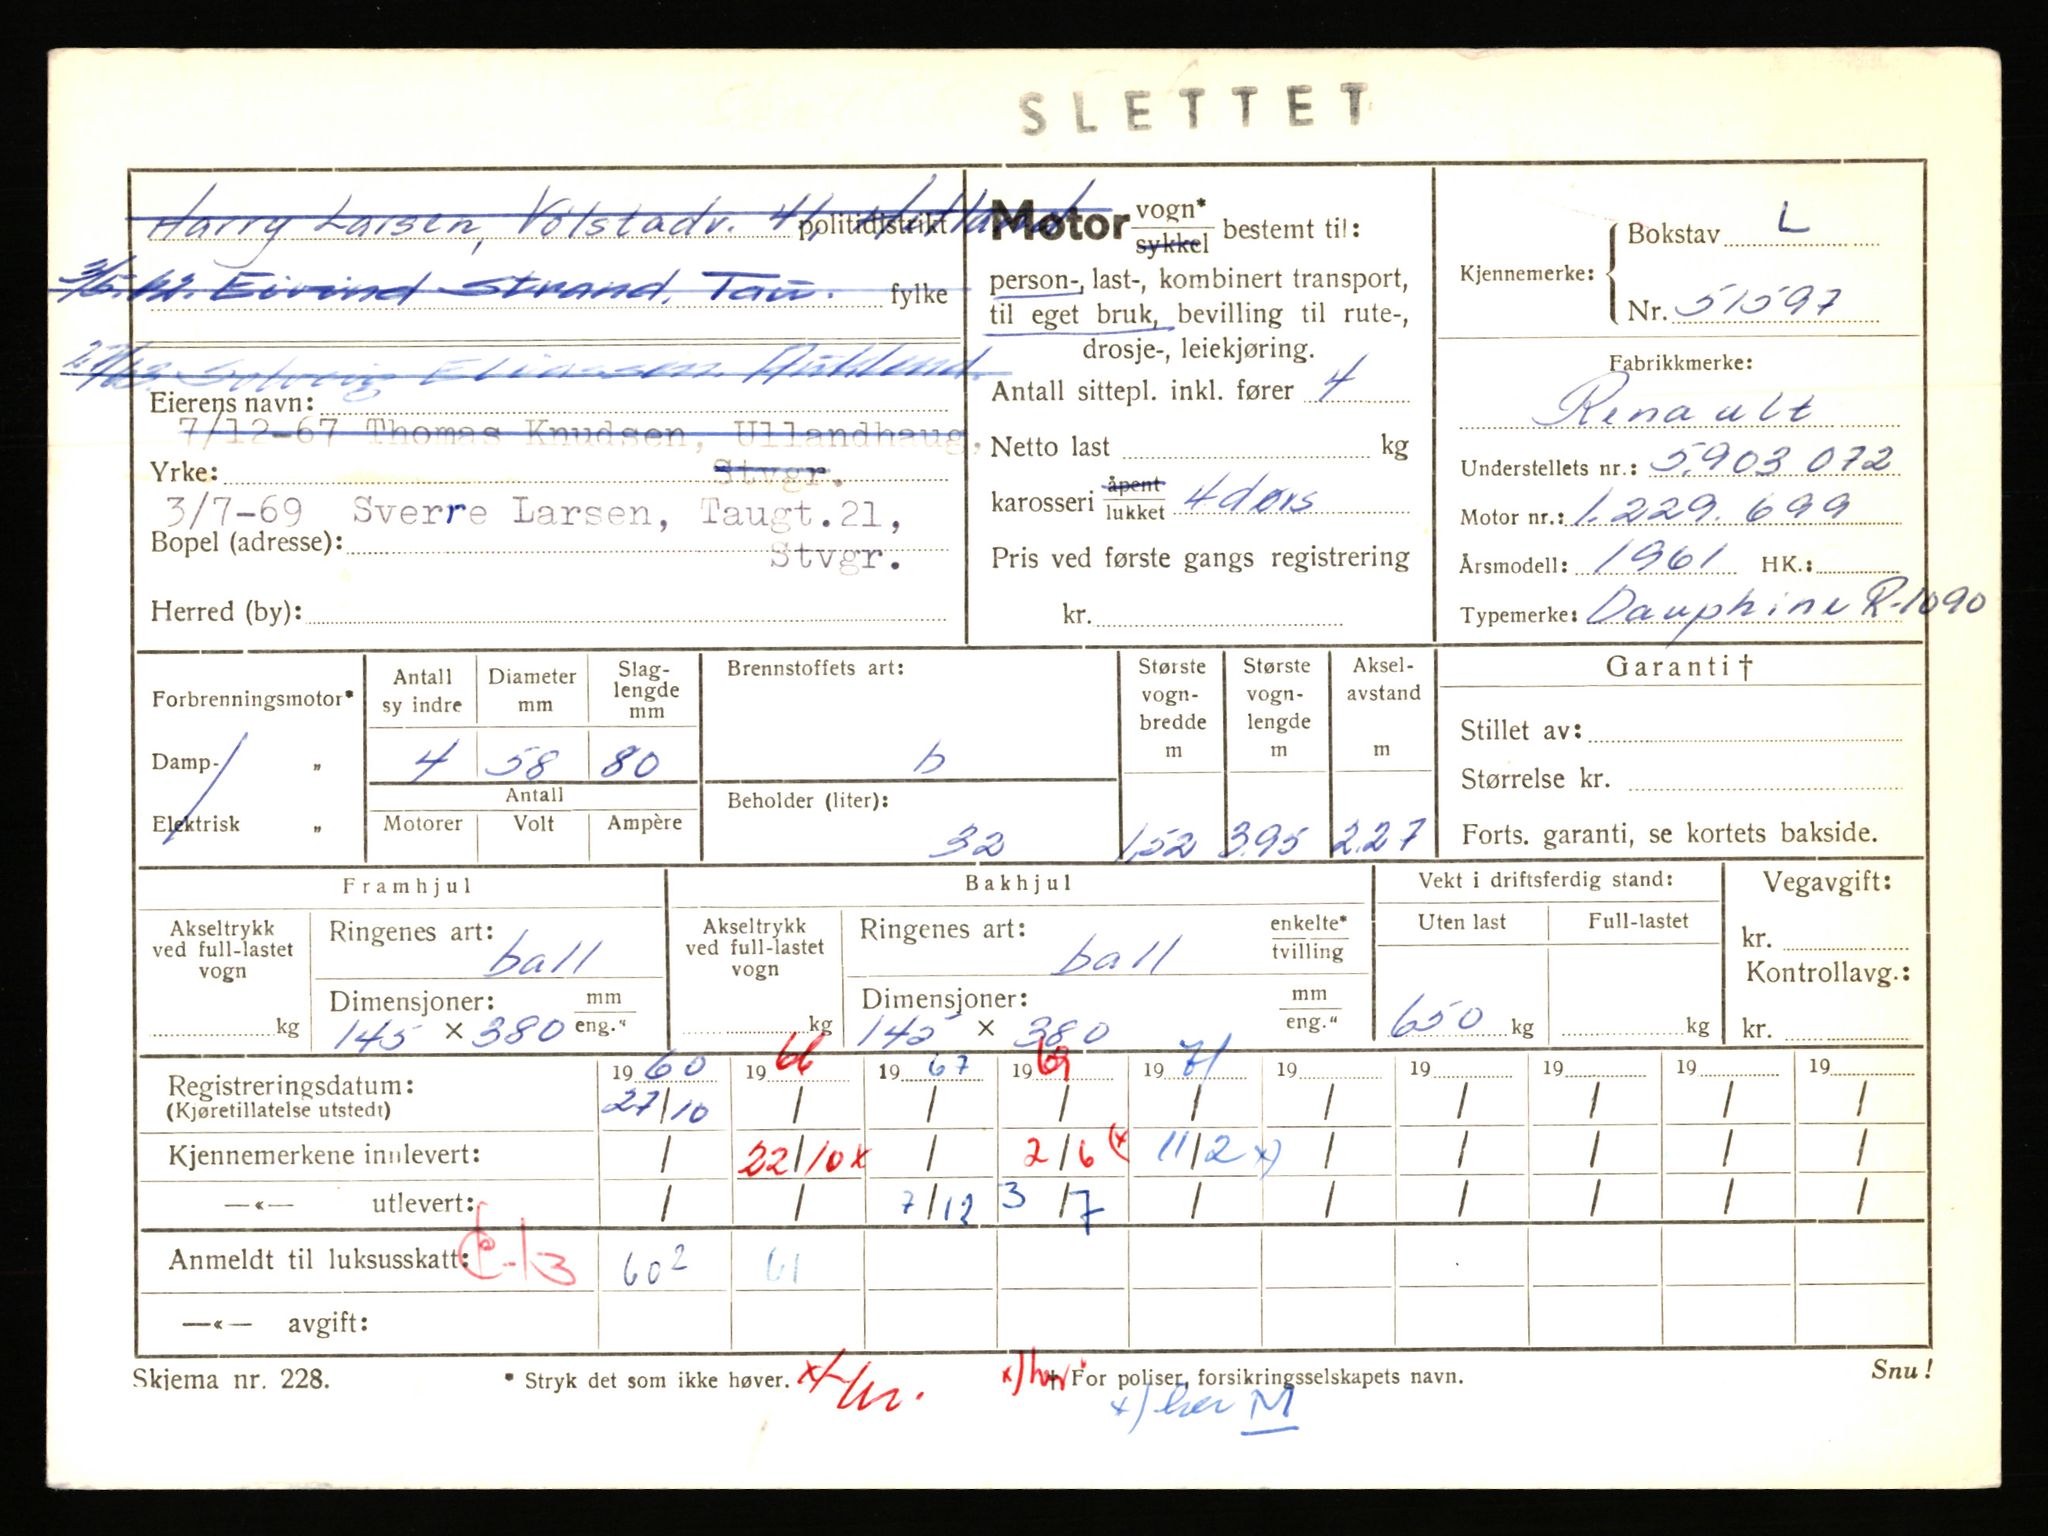 SLETTET
Harry Larsen, Volstadv. 41, politidistrikt
3/5.62. Eivind Strand, Tau. fylke
Solveig Eliassen
Eierens navn:
7/12-67 Thomas Knudsen, Ullandhaug,
Yrke: Stvgr.
3/7-69 Sverre Larsen, Taugt.21,
Bopel (adresse): Stvgr.
Herred (by):
Motor vogn* sykkel bestemt til:
person-, last-, kombinert transport,
til eget bruk, bevilling til rute-,
drosje-, leiekjøring.
Antall sittepl. inkl. fører 4
Netto last kg
karosseri åpent lukket 4 dørs
Pris ved første gangs registrering
kr.
Kjennemerke: Bokstav L
Nr. 51597
Fabrikkmerke:
Renault
Understellets nr.: 5.903 072
Motor nr.: 1.229.699
Årsmodell: 1961 HK.:
Typemerke: Dauphine R-1090
Forbrenningsmotor*
Damp- „
Elektrisk „
Antall sy indre Diameter mm Slag-lengde mm
4 58 80
Antall
Motorer Volt Ampère
Brennstoffets art:
b
Beholder (liter):
32
Største vogn-bredde m Største vogn-lengde m Aksel-avstand m
1,52 3.95 2.27
Garanti †
Stillet av:
Størrelse kr.
Forts. garanti, se kortets bakside.
Framhjul
Akseltrykk ved full-lastet vogn
kg
Ringenes art: ball
Dimensjoner: mm eng."
145 × 380
Bakhjul
Akseltrykk ved full-lastet vogn
kg
Ringenes art: ball enkelte* tvilling
Dimensjoner: mm eng."
145 × 380
Vekt i driftsferdig stand:
Uten last Full-lastet
650 kg kg
Vegavgift:
kr.
Kontrollavg.:
kr.
Registreringsdatum: 19 60 19 66 19 67 19 69 19 71 19 19 19 19 19
(Kjøretillatelse utstedt) 27/10 / / / / / / / / /
Kjennemerkene innlevert: / 22/10 x / 2/6 (x 11/2 x) / / / / /
—«— utlevert: / / 7/12 3/7 / / / / / /
Anmeldt til luksusskatt: 60² 61
—«— avgift:
Skjema nr. 228. * Stryk det som ikke høver. x) her x) her † For poliser, forsikringsselskapets navn. Snu!
x) her M